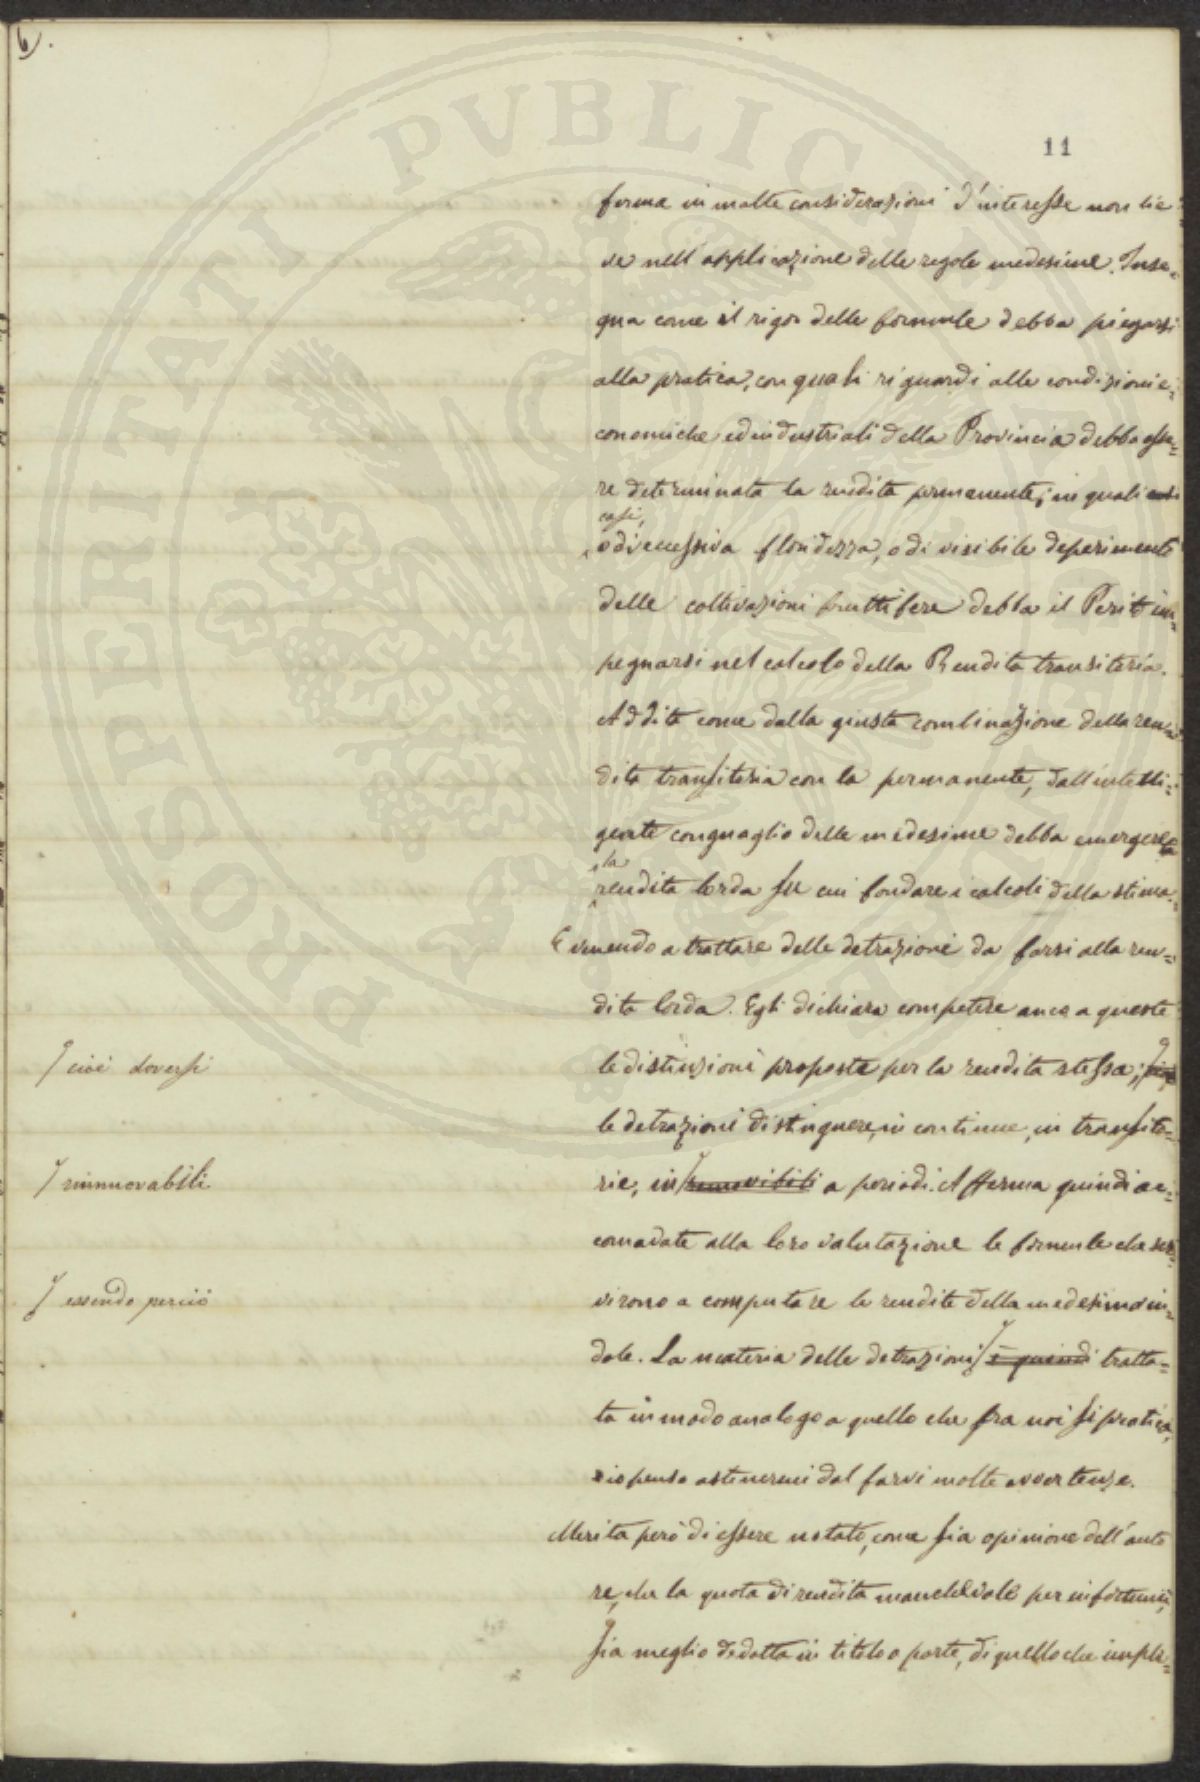 6).
11
PROSPERITATI PVBLICAE
forma in molte considerazioni d'interesse non lie
ve nell'applicazione delle regole medesime. Inse=
gna come il rigor delle formule debba piegarsi
alla pratica, con quali riguardi alle condizioni e=
conomiche ed industriali della Provincia debba esse=
re determinata la rendita permanente; in quali casi
casi,
o di eccessiva floridezza, o di visibile deperimento
delle coltivazioni fruttifere debba il Perito im=
pegnarsi nel calcolo della Rendita transitoria.
Addita come dalla giusta combinazione della ren=
dita transitoria con la permanente, dall'intelli=
gente conguaglio delle medesime debba emergere
la
rendita lorda su cui fondare i calcoli della stima.
E venendo a trattare delle detrazioni da farsi alla ren=
dita lorda. Egli dichiara competere anco a queste
le distinzioni proposte per la rendita stessa;
cioè doversi
le detrazioni distinguere, in continue, in transito=
rie, in removibili a periodi. Afferma quindi ac=
rinnuovabili
comodate alla loro valutazione le formule che ser=
virono a computare le rendite della medesima in=
essendo perciò
dole. La materia delle detrazioni è quindi tratta=
ta in modo analogo a quello che fra noi si pratica,
io penso astenermi dal farvi molte avvertenze.
Merita però di essere notato, come sia opinione dell'auto
re, che la quota di rendita manchevole per infortunii,
sia meglio dedotta in titolo a parte, di quello che impli=